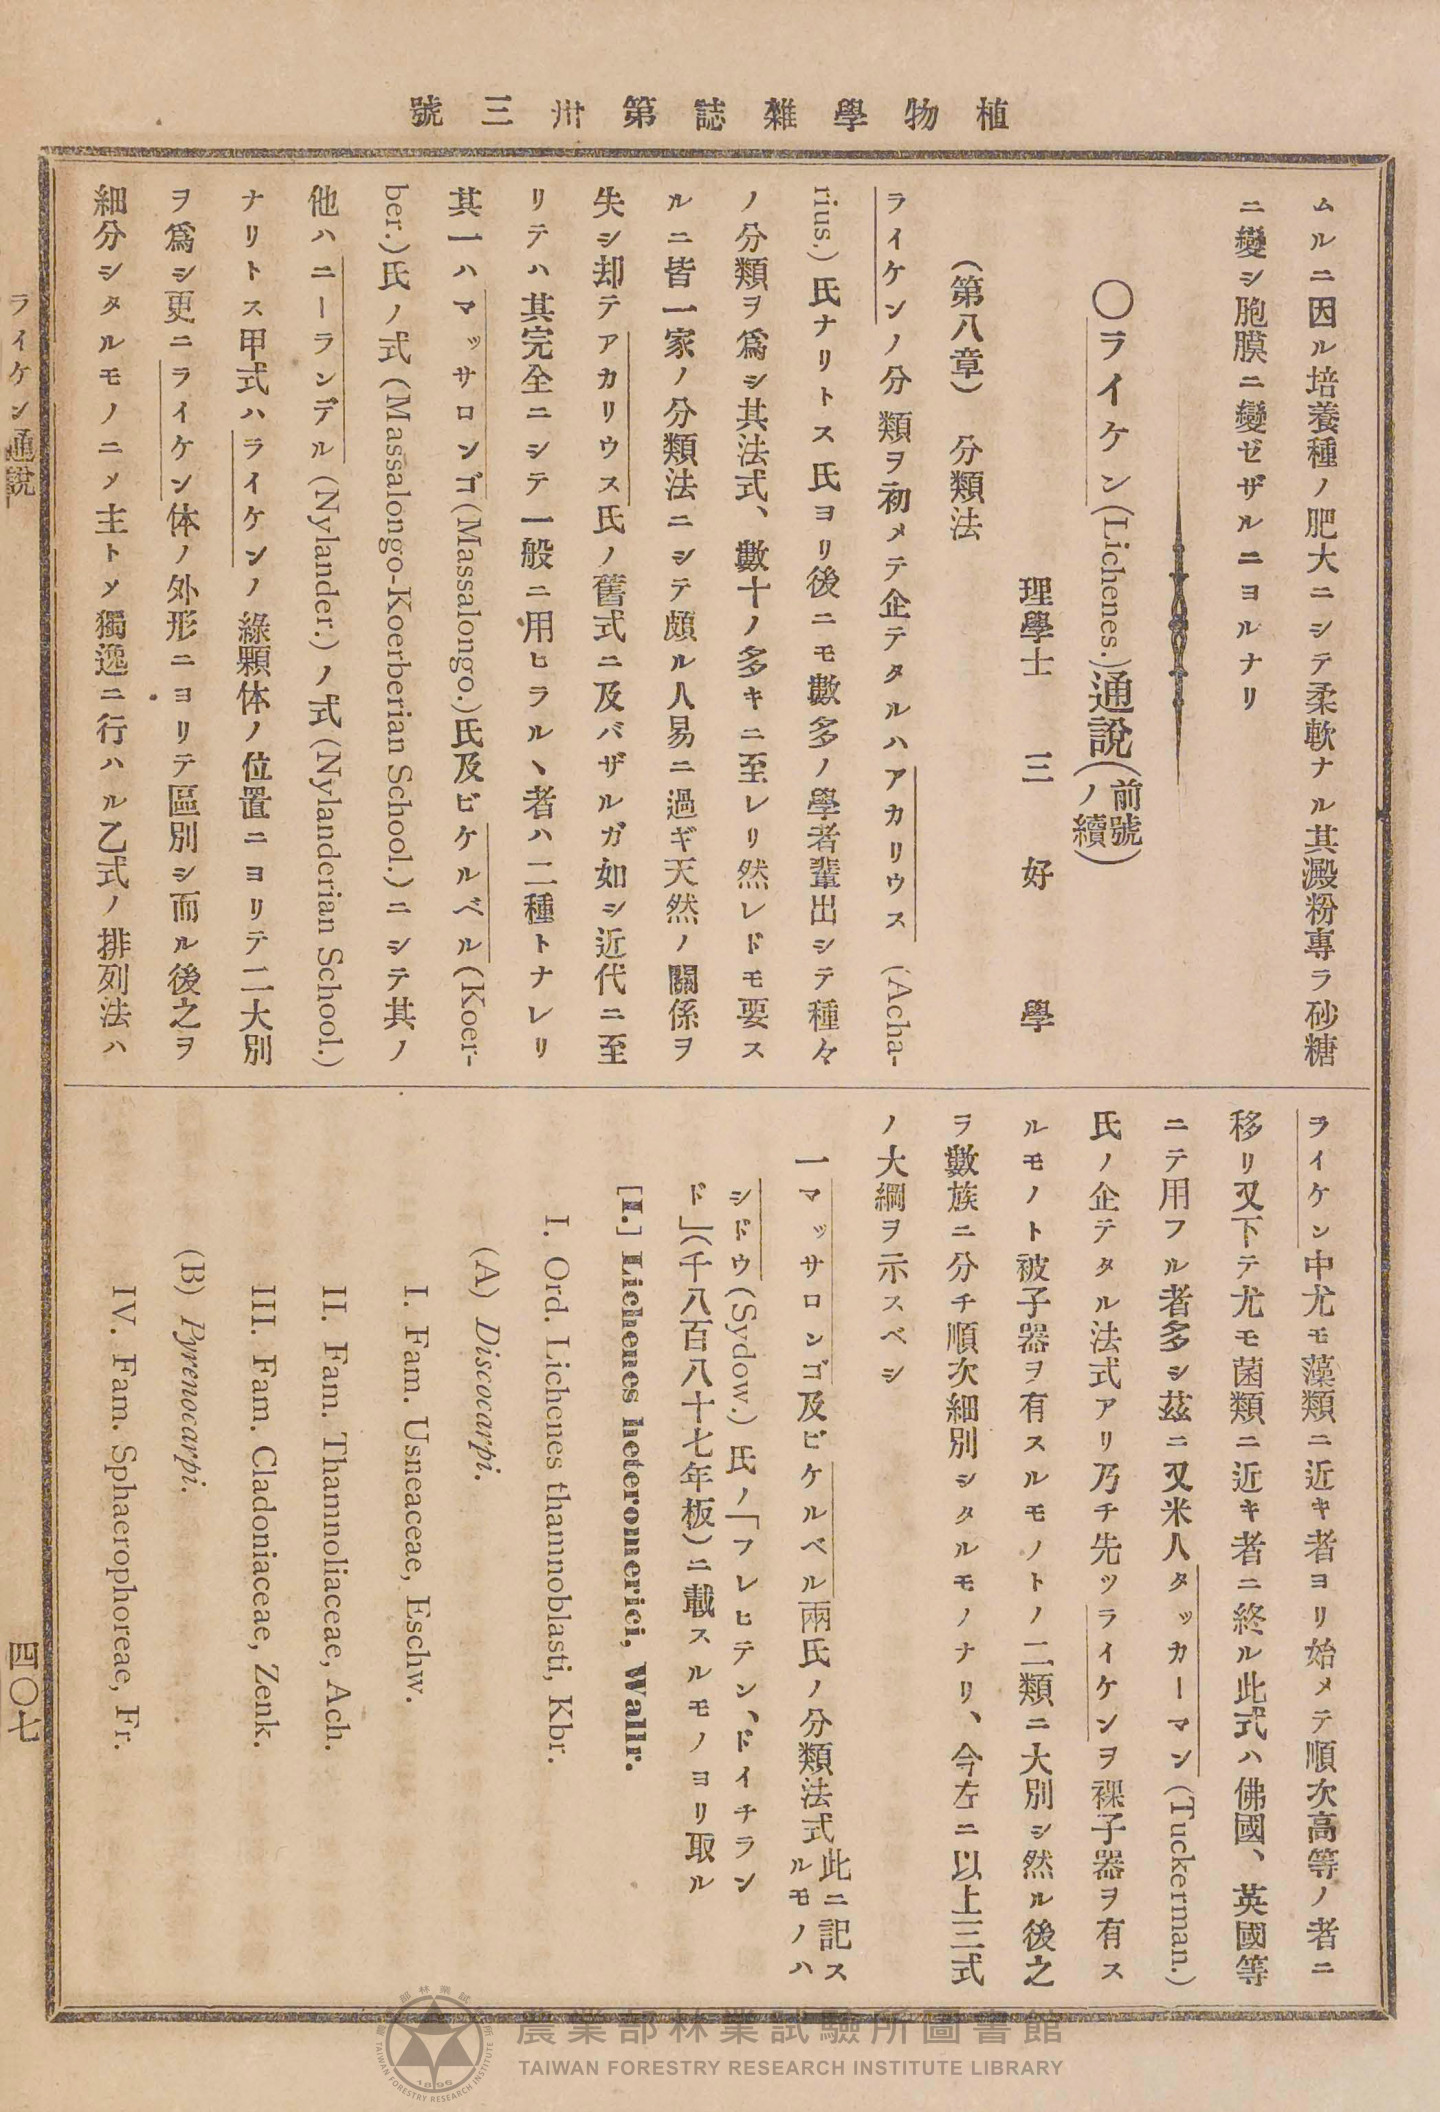 植物學雜誌第卅三號
ムルニ因ル培養種ノ肥大ニシテ柔軟ナル其澱粉專ラ砂糖
ニ變シ胞膜ニ變ゼザルニヨルナリ
〇ライケン(Lichenes.)通說(前號ノ續)
理學士 三好學
(第八章) 分類法
ライケンノ分類ヲ初メテ企テタルハアカリウス (Acha-
rius.) 氏ナリトス氏ヨリ後ニモ數多ノ學者輩出シテ種々
ノ分類ヲ爲シ其法式、數十ノ多キニ至レリ然レドモ要ス
ルニ皆一家ノ分類法ニシテ頗ル人易ニ過ギ天然ノ關係ヲ
失シ却テアカリウス氏ノ舊式ニ及バザルガ如シ近代ニ至
リテハ其完全ニシテ一般ニ用ヒラルヽ者ハ二種トナレリ
其一ハマッサロンゴ(Massalongo.)氏及ビケルベル(Koer-
ber.)氏ノ式 (Massalongo-Koerberian School.) ニシテ其ノ
他ハニーランデル (Nylander.) ノ式 (Nylanderian School.)
ナリトス甲式ハライケンノ綠顆体ノ位置ニヨリテ二大別
ヲ爲シ更ニライケン体ノ外形ニヨリテ區別シ而ル後之ヲ
細分シタルモノニメ主トメ獨逸ニ行ハル乙式ノ排列法ハ
ライケン中尤モ藻類ニ近キ者ヨリ始メテ順次高等ノ者ニ
移リ又下テ尤モ菌類ニ近キ者ニ終ル此式ハ佛國、英國等
ニテ用フル者多シ茲ニ又米人タッカーマン (Tuckerman.)
氏ノ企テタル法式アリ乃チ先ツライケンヲ裸子器ヲ有ス
ルモノト被子器ヲ有スルモノトノ二類ニ大別シ然ル後之
ヲ數族ニ分チ順次細別シタルモノナリ、今左ニ以上三式
ノ大綱ヲ示スベシ
一マッサロンゴ及ビケルベル兩氏ノ分類法式 此ニ記スルモノハ
シドウ (Sydow.) 氏ノ「フレヒテン、ドイチラン
ド」(千八百八十七年板)ニ載スルモノヨリ取ル
[I.] Lichenes heteromerici, Wallr.
I. Ord. Lichenes thamnoblasti, Kbr.
(A) Discocarpi.
I. Fam. Usneaceae, Eschw.
II. Fam. Thamnoliaceae, Ach.
III. Fam. Cladoniaceae, Zenk.
(B) Pyrenocarpi.
IV. Fam. Sphaerophoreae, Fr.
ライケン通說
四〇七
農業部林業試驗所圖書館
TAIWAN FORESTRY RESEARCH INSTITUTE LIBRARY